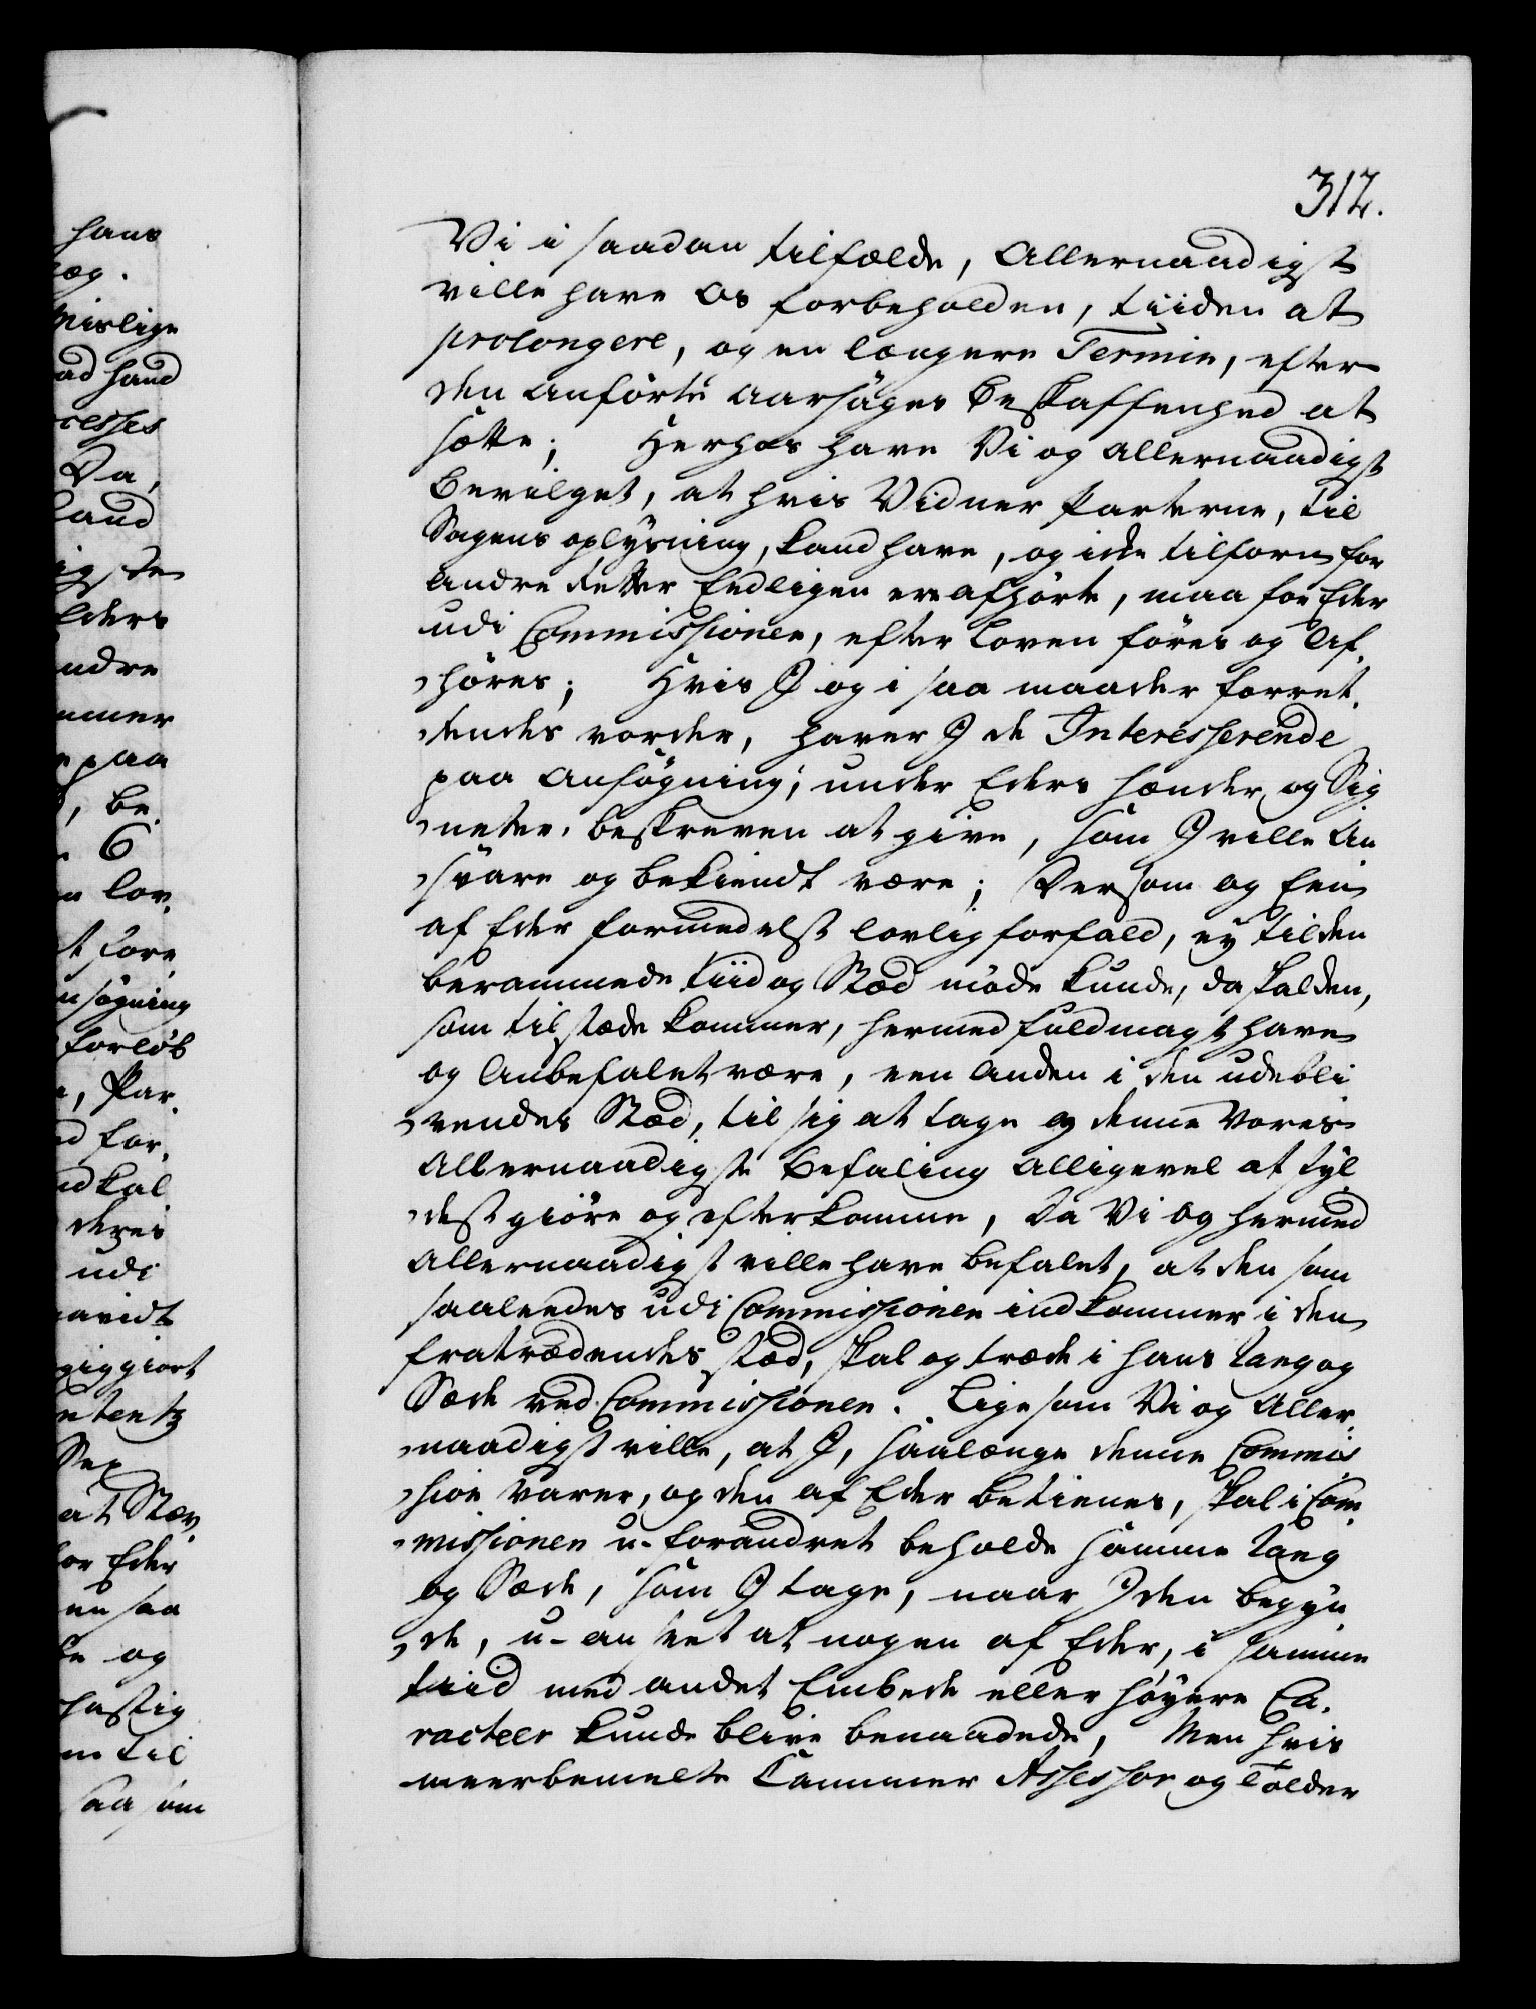 312.
hans
æg.
Vi i saadan tilfælde, Allernaadigst
ville have Os forbeholden, tiiden at
prolongere, og en længere Termin, efter
den anførte Aarsages beskaffenhed at
sætte; Herhos have Vi og allernaadigst
bevilget, at hvis Vidner Parterne, til
Sagens oplysning, kand have, og ikke tilforn for
andre Retter Eedligen ere afhørte, maa for Eder
udi Commissionen, efter Loven føres og Af-
høres; Hvis I og i saa maader forret-
tendes vorder, haver I de Interesserende
paa Ansøgning; under Eders Hænder og Sig
neter, beskreven at give, som I ville An
svare og bekiendt være; Dersom og Een
af Eder formedelst lovlig forfald, ey til den
berammede tiid og Stæd møde kunde, da skal den,
som tilstæde kommer, hermed fuldmagt have
og Anbefalet være, een anden i den udebli
vendes Stæd, til sig at tage og denne Vores
Allernaadigste Befaling alligevel at fyl
dest giøre og efterkomme, Da Vi og hermed
Allernaadigst ville have befalet, at den som
saaleedes udi Commissionen indkommer i den
fratrædendes stæd, skal og træde i hans Rang og
Sæde ved Commissionen. Ligesom Vi og Aller-
naadigst ville, at I, saalænge denne Commis
sion varer, og den af Eder betienes, skal i Com-
missionen u-forandret beholde samme Rang
og Sæde, som I tage, naar I den begyn
de, u-anseet at nogen af Eder, i samme
tiid med andet Embede eller høyere Ca-
racteer kunde blive benaadede, Men hvis
meerbemelte Cammer Assessor og Tolder